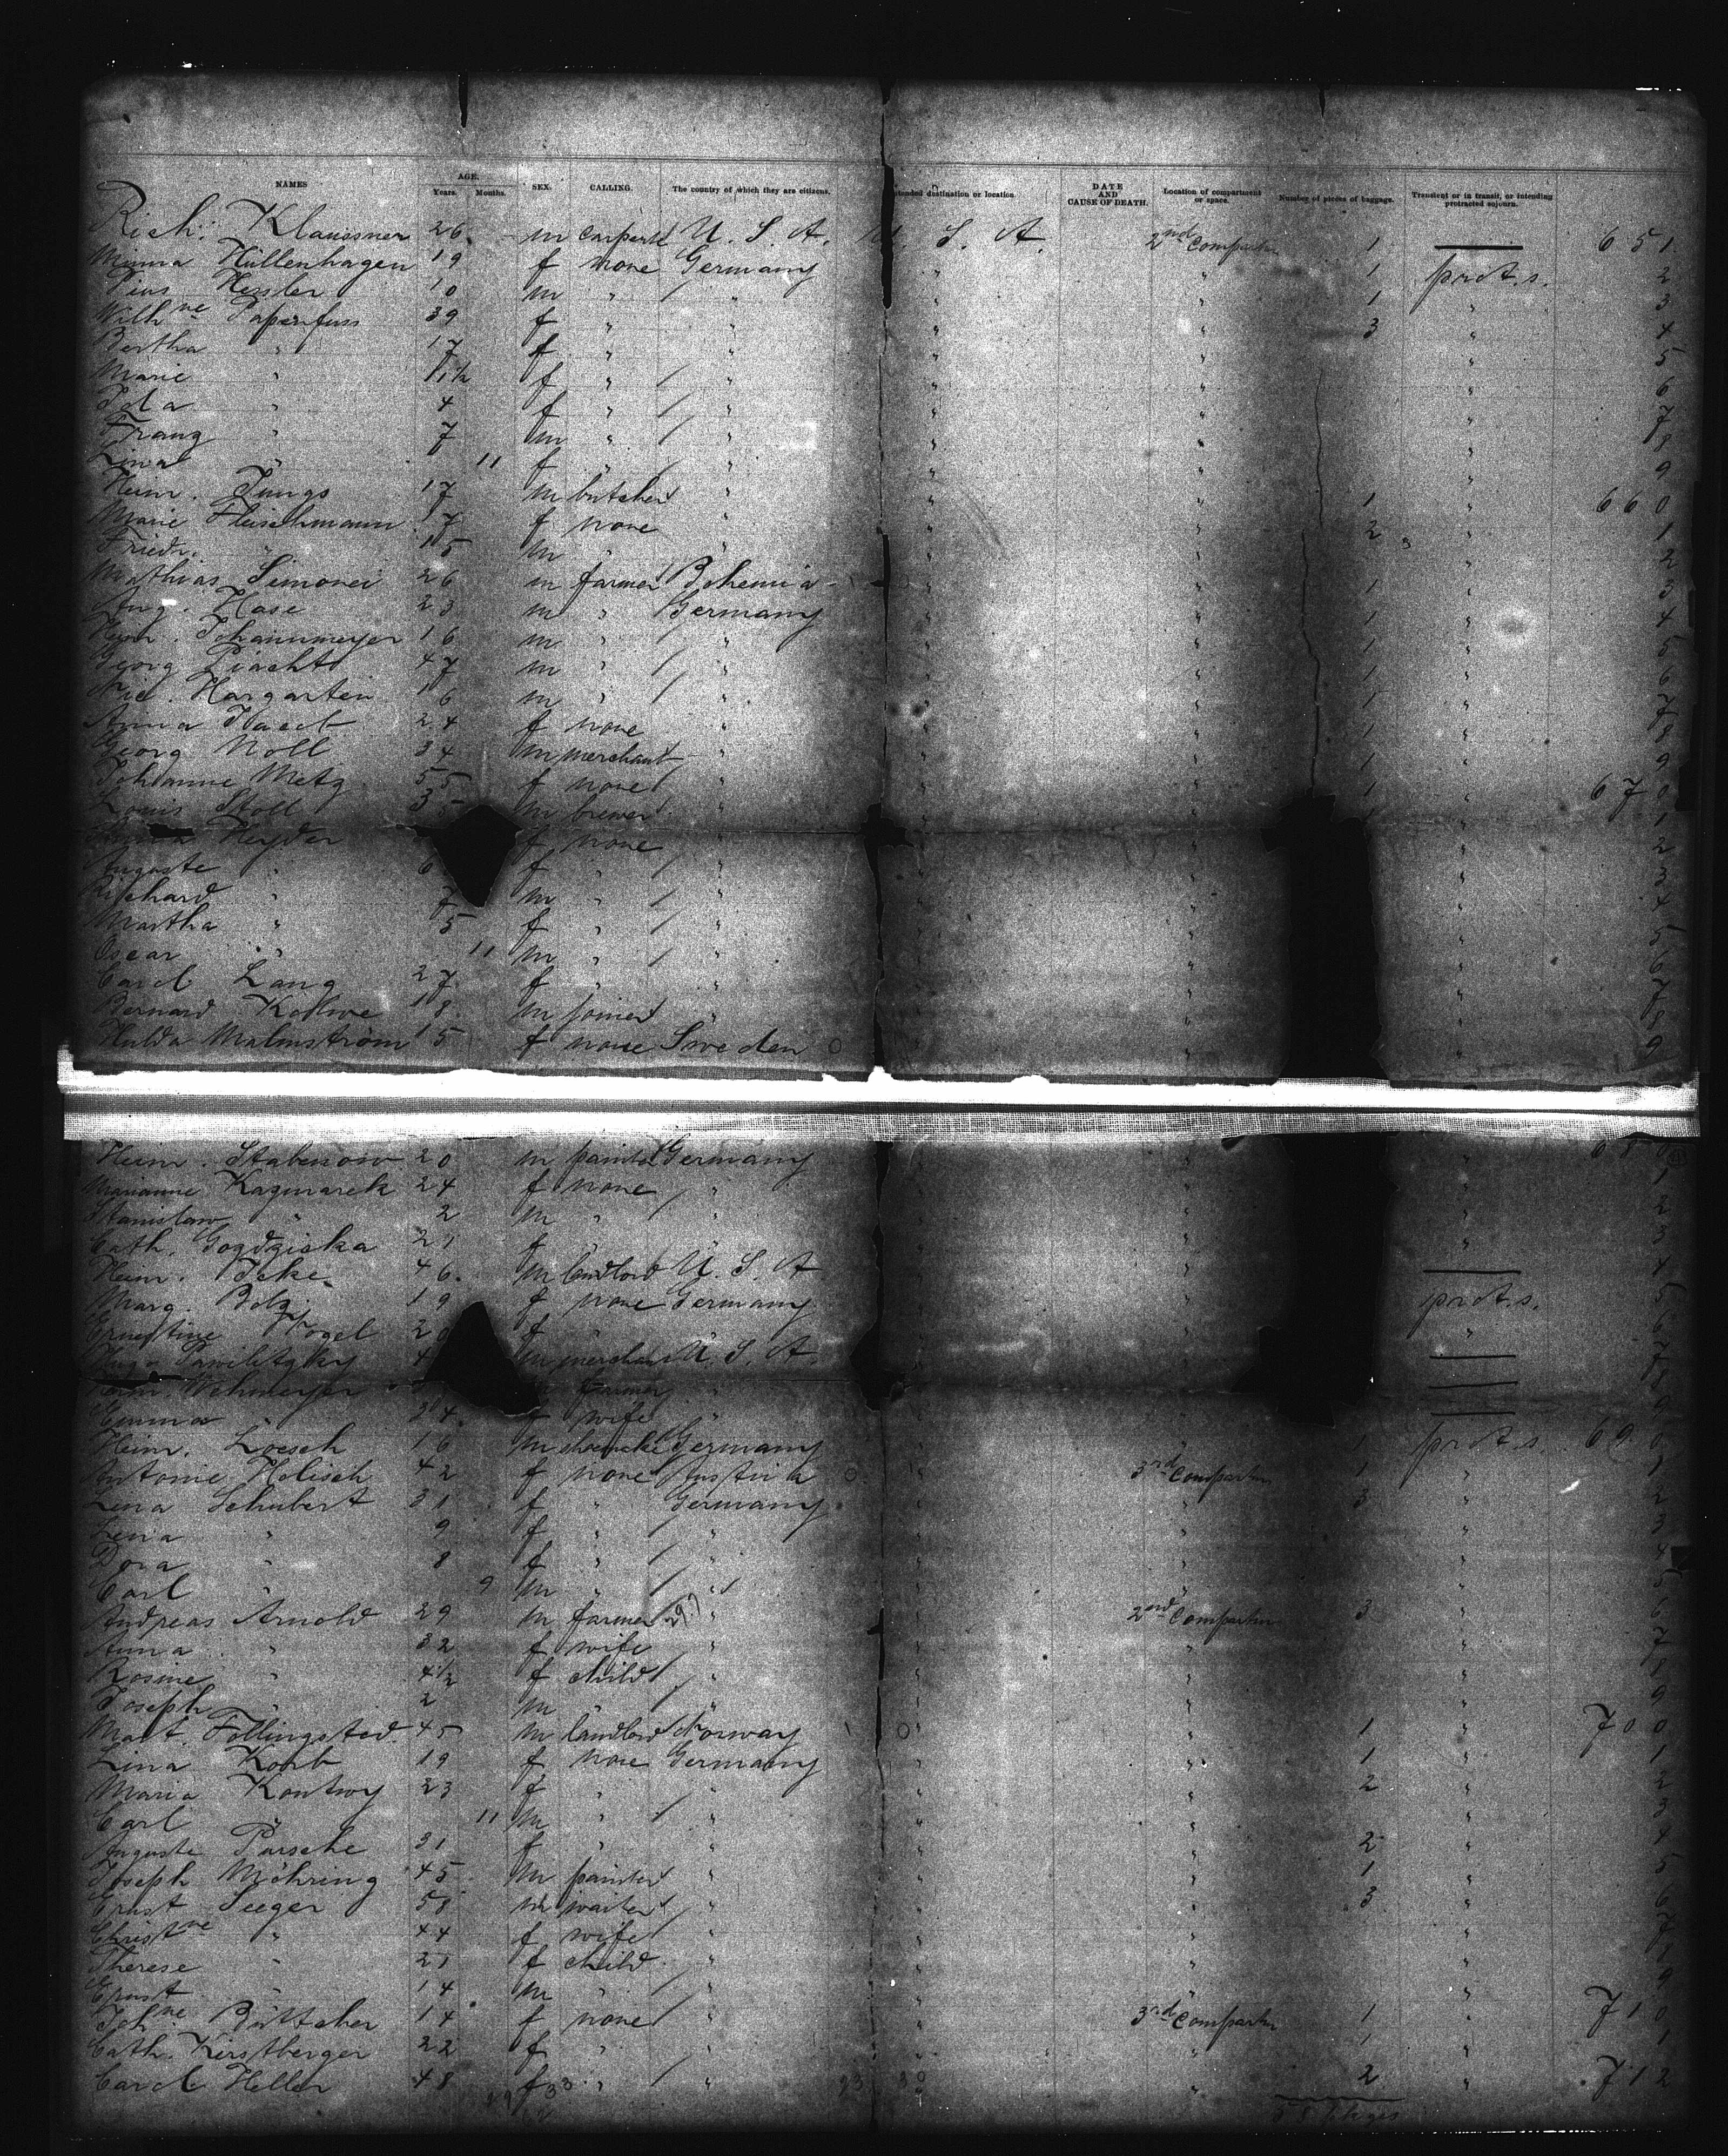 NAMES AGE. Years. Months. SEX. CALLING. The country of which they are citizens. Intended destination or location DATE AND CAUSE OF DEATH. Location of compartment or space. Number of pieces of baggage. Transient or in transit, or intending protracted sojourn.
Rich. Klaussner 26 m U. S. A. U. S. A. 2nd Compartm 1 — 651
Minna Hüllenhagen 19 f none Germany " " 1 prot. s. 2
Pius Hessler 10 m " " " " 1 " 3
Wilhne Papenfuss 39 f " " " " 3 " 4
Bertha " 17 f " " " " " 5
Marie " 11½ f " " " " " 6
Ida " 4 f " " " " " 7
Franz " 7 m " " " " " 8
Lina " 11 f " " " " " 9
Heinr. Jungs 17 m butcher " " " 1 " 660
Marie Fleischmann 17 f none " " " 2 " 1
Friedr. " 15 m " " " " " 2
Mathias 26 m farmer Bohemia " " 1 " 3
Aug. Hase 23 m " Germany " " 1 " 4
Heinr. Johannmeyer 16 m " " " " 1 " 5
Georg 47 m " " " " 1 " 6
Nic. Hargarten 16 m " " " " 1 " 7
Anna 24 f none " " " 1 " 8
Georg Noll 34 m merchant " " " 1 " 9
Johanne Metz 55 f none " " " 1 " 670
Louis Stoll 35 m brewer " " " 1 " 1
Heyder f none " " " " 2
Auguste " 6 f " " " " " 3
Richard " 7 m " " " " " 4
Martha " 5 f " " " " " 5
Oscar " 11 m " " " " " 6
Carol. Lang 27 f " " " " " 7
Bernard 18 m joiner " " " " 8
Hulda Malmström 15 f none Sweden " " " 9
Heinr. Stabenow 20 m painter Germany " " "
Marianne Kazmarek 24 f none " " " " 1
Stanislaw " 2 m " " " " " 2
Cath. Gozdziska 21 f " " " " " 3
Heinr. 46 m landlord U. S. A. " " — 4
Marg. Bolz 19 f none Germany " " prot. s. 5
Ernestine Vogel 20 f " " " " " 6
Hugo 4 m merchant U. S. A. " " — 7
Wehmeyer farmer " " " — 8
Emma " 24 f wife " " " — 9
Heinr. Loesch 16 m shoemaker Germany " " 1 prot. s. 690
Antonie Holisch 42 f none Austria " 3rd Compartm 1 " 1
Lena Schubert 31 f " Germany " " 3 " 2
Lena " 9 f " " " " " 3
Dora " 8 f " " " " " 4
Carl " 9 m " " " " " 5
Andreas Arnold 29 m farmer " " 2nd Compartm 3 " 6
Anna " 32 f wife " " " " 7
Rosine " 4½ f child " " " " 8
Joseph " 2 m " " " " " 9
Mart. Follingstad 45 m landlord Norway " " 1 " 700
Lina Korb 19 f none Germany " " 1 " 1
Maria 23 f " " " " 2 " 2
Carl " 11 m " " " " " 3
Auguste Pursche 31 f " " " " 2 " 4
Joseph Möhring 45 m painter " " " 1 " 5
Ernst Seeger 58 m waiter " " " 3 " 6
Christne " 44 f wife " " " " 7
Therese " 21 f child " " " " 8
Ernst " 14 m " " " " " 9
Johne Böttcher 14 f none " " 3rd Compartm 1 " 710
Cath. Kerstberger 22 f " " " " 1 " 1
Carol. Heller 48 f " " " " 2 " 712